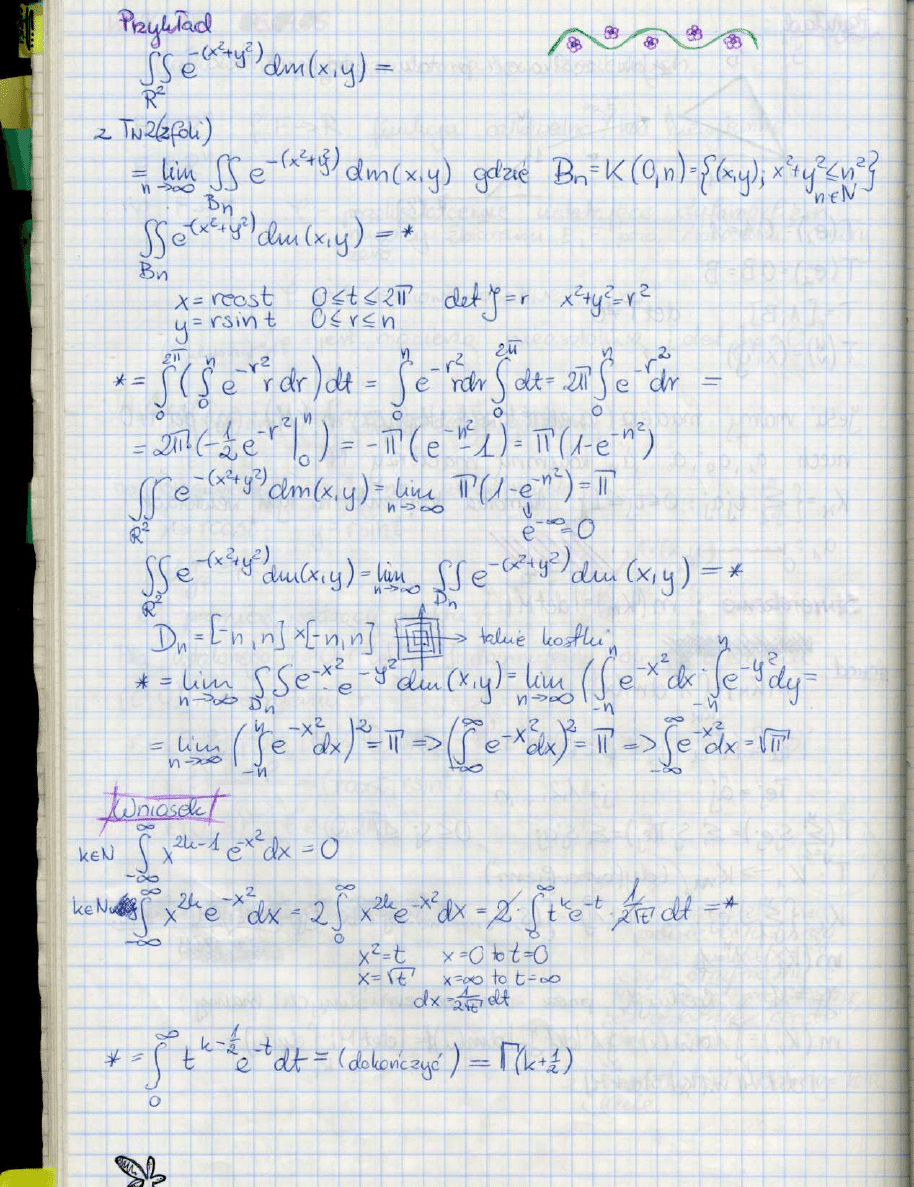 Przykład
∬_{R²} e^{-(x²+y²)} dm(x,y) =
z Tw 2(z foli)
= lim_{n→∞} ∬_{Bn} e^{-(x²+y²)} dm(x,y) gdzie Bn = K(0,n) = {(x,y); x²+y² ≤ n²} n∈N
∬_{Bn} e^{-(x²+y²)} dm(x,y) = *
x = rcost 0≤t≤2π det J = r x²+y² = r²
y = rsint 0≤r≤n
* = ∫_0^{2π} (∫_0^n e^{-r²} r dr) dt = ∫_0^n e^{-r²} r dr ∫_0^{2π} dt = 2π ∫_0^n e^{-r²} dr =
= 2π (-1/2 e^{-r²} |_0^n) = -π (e^{-n²} - 1) = π (1-e^{-n²})
∬_{R²} e^{-(x²+y²)} dm(x,y) = lim_{n→∞} π (1-e^{-n²}) = π
↓
e^{-∞} = 0
∬_{R²} e^{-(x²+y²)} dm(x,y) = lim_{n→∞} ∬_{Dn} e^{-(x²+y²)} dm(x,y) = *
Dn = [-n,n] × [-n,n] → takie kostki
* = lim_{n→∞} ∬_{Dn} e^{-x²} · e^{-y²} dm(x,y) = lim_{n→∞} (∫_{-n}^n e^{-x²} dx · ∫_{-n}^n e^{-y²} dy =
= lim_{n→∞} (∫_{-n}^n e^{-x²} dx)² = π => (∫_{-∞}^∞ e^{-x²} dx)² = π => ∫_{-∞}^∞ e^{-x²} dx = √π
Wniosek
k∈N ∫_{-∞}^∞ x^{2k-1} e^{-x²} dx = 0
k∈N ∫_{-∞}^∞ x^{2k} e^{-x²} dx = 2 ∫_0^∞ x^{2k} e^{-x²} dx = 2 · ∫_0^∞ t^k e^{-t} · 1/(2√t) dt = *
x² = t x=0 to t=0
x = √t x=∞ to t=∞
dx = 1/(2√t) dt
* = ∫_0^∞ t^{k-1/2} e^{-t} dt = (dokończyć) = Γ(k+1/2)